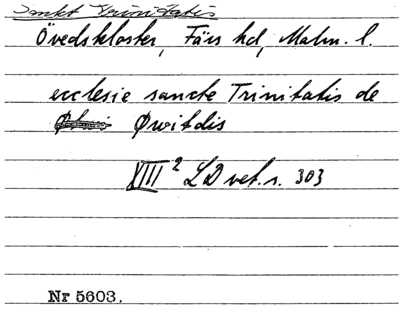 Sankt Trinitatis
Övedskloster, Färs hd, Malm. l.
ecclesie sancte Trinitatis de
Øwitdis
XIII 2 LDvet. s. 303
Nr 5603.